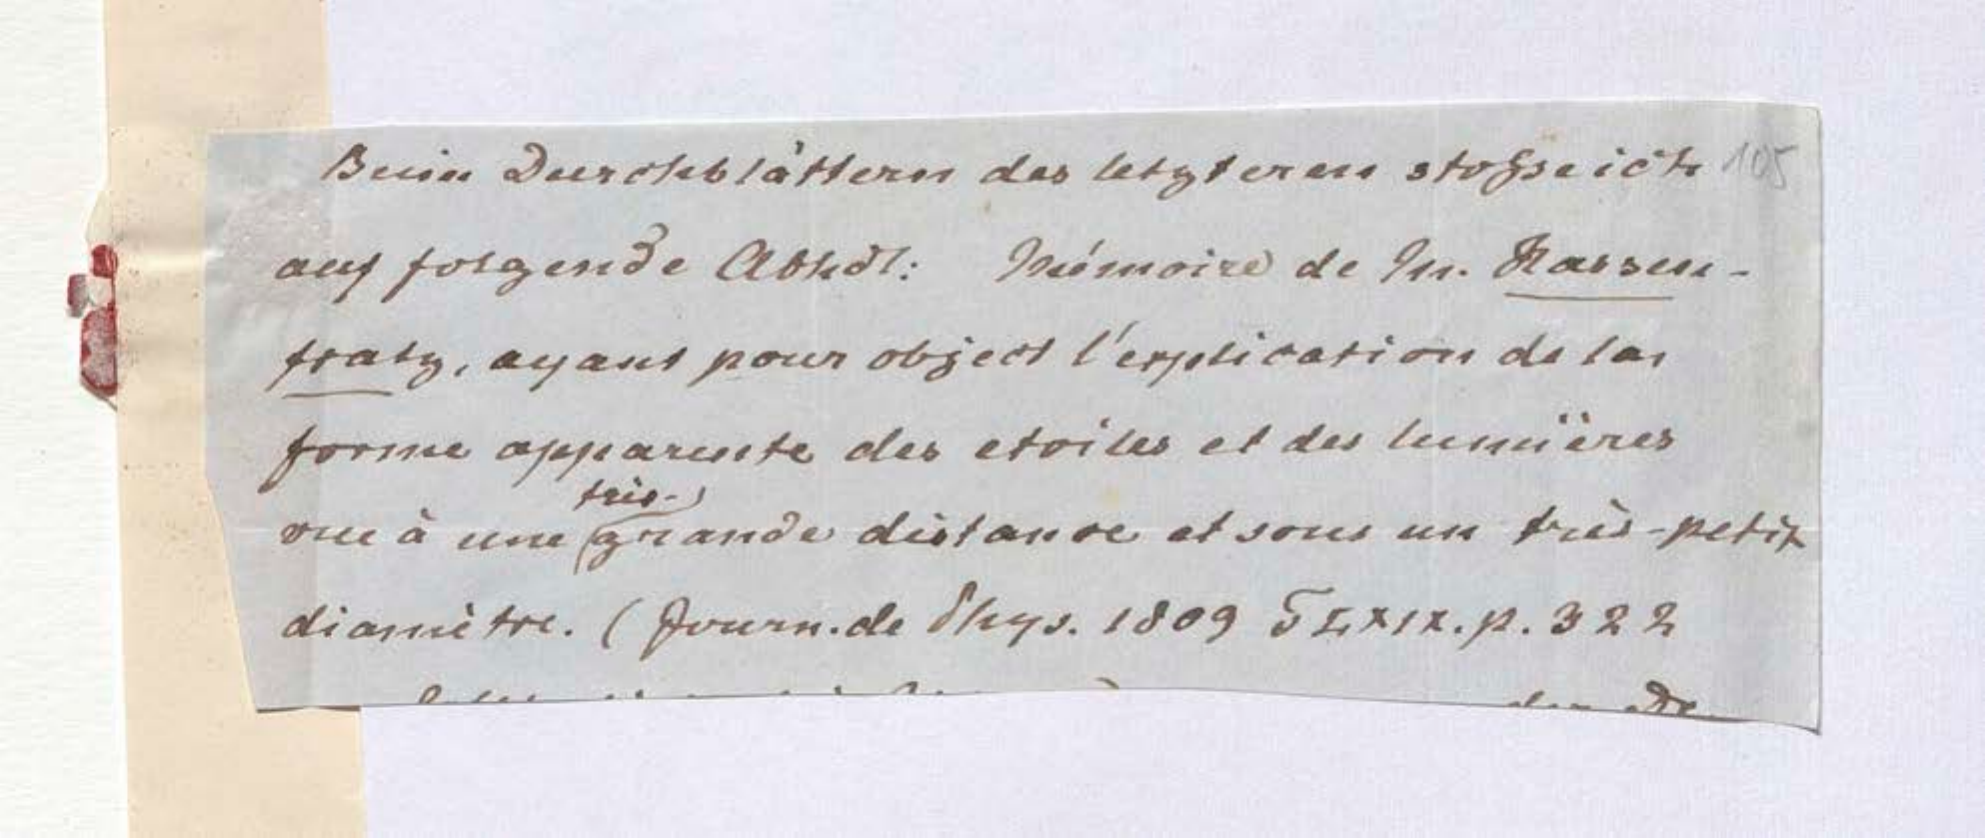 Beim Durchblättern des letzteren stosse ich 105
auf folgende Abhdl: Mémoire de M. Hassen-
fratz, ayant pour object l'explication de la
forme apparente des etoiles et des lumières
très-
vue à une grande distance et sous un très-petit
diamètre. (Journ. de Phys. 1809 T LXIX. p. 322